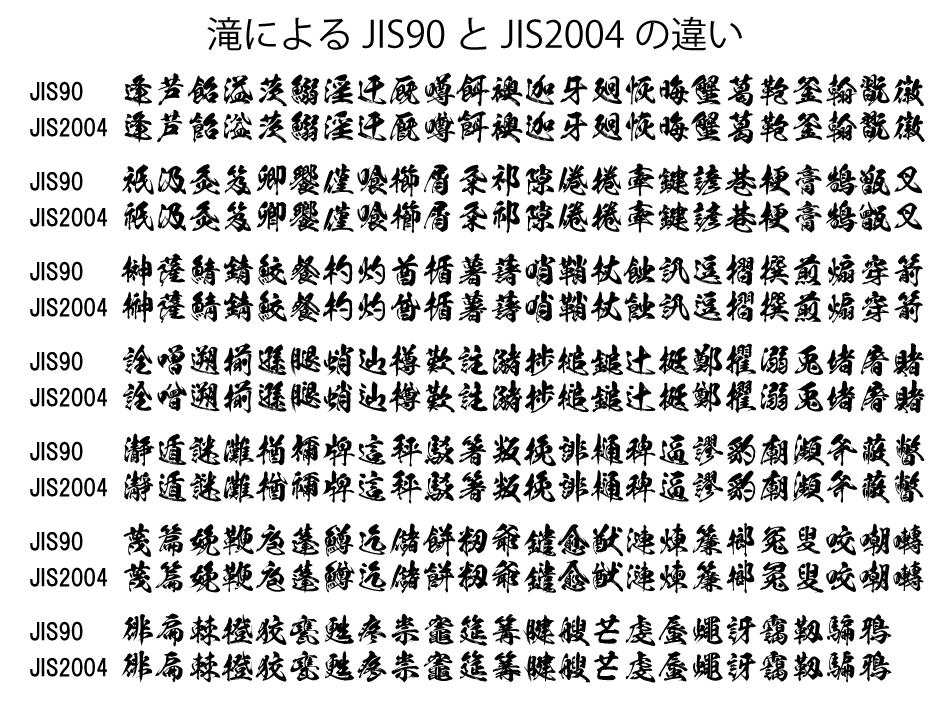 滝によるJIS90とJIS2004の違い
JIS90 逢芦飴溢茨鰯淫迂厩噂餌襖迦牙廻恢晦蟹葛鞄釜翰翫徽
JIS2004 逢芦飴溢茨鰯淫迂厩噂餌襖迦牙廻恢晦蟹葛鞄釜翰翫徽
JIS90 祇汲灸笈卿饗僅喰櫛屑粂祁隙倦捲牽鍵諺巷梗膏鵠甑叉
JIS2004 祇汲灸笈卿饗僅喰櫛屑粂祁隙倦捲牽鍵諺巷梗膏鵠甑叉
JIS90 榊薩鯖錆鮫餐杓灼酋楯薯藷哨鞘杖蝕訊逗摺撰煎煽穿箭
JIS2004 榊薩鯖錆鮫餐杓灼酋楯薯藷哨鞘杖蝕訊逗摺撰煎煽穿箭
JIS90 詮噌遡揃遜腿蛸辿樽歎註瀦捗槌鎚辻挺鄭擢溺兎堵屠賭
JIS2004 詮噌遡揃遜腿蛸辿樽歎註瀦捗槌鎚辻挺鄭擢溺兎堵屠賭
JIS90 瀞遁謎灘楢禰牌這秤駁箸叛挽誹樋稗逼謬豹廟瀕斧蔽瞥
JIS2004 瀞遁謎灘楢禰牌這秤駁箸叛挽誹樋稗逼謬豹廟瀕斧蔽瞥
JIS90 蔑篇娩鞭庖蓬鱒迄儲餅籾爺鑓愈猷漣煉簾榔冤叟咬嘲囀
JIS2004 蔑篇娩鞭庖蓬鱒迄儲餅籾爺鑓愈猷漣煉簾榔冤叟咬嘲囀
JIS90 徘扁棘橙狡甕甦疹祟竈筵篝腱艘芒虔蜃蠅訝靄靱騙鴉
JIS2004 徘扁棘橙狡甕甦疹祟竈筵篝腱艘芒虔蜃蠅訝靄靱騙鴉